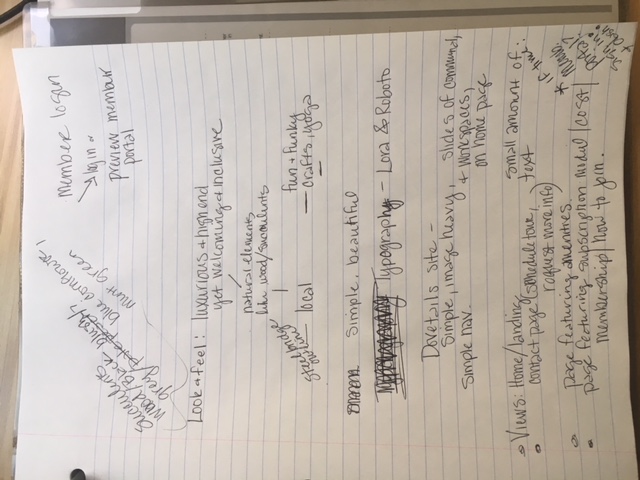 Succulents
wood/Black blush,
grey/
blue cornflower,
mint green
Member login
log in or
preview member
portal
Look & feel: luxurious & high end
yet welcoming & inclusive
natural elements
like wood/succulents
Steel bridge
outline
local
fun & funky
crafts, yoga
Simple, beautiful
Typography - Lora & Roboto
Dovetails site -
Simple, image heavy,
Simple nav.
slides of communal,
& workspaces,
on home page
small amount of
text
Views: Home/landing
contact page (schedule tour,
request more info)
page featuring amenities.
page featuring subscription modul/cost/
membership/how to join.
* if time:
Memb.
Portal?
Sign in &
dash.